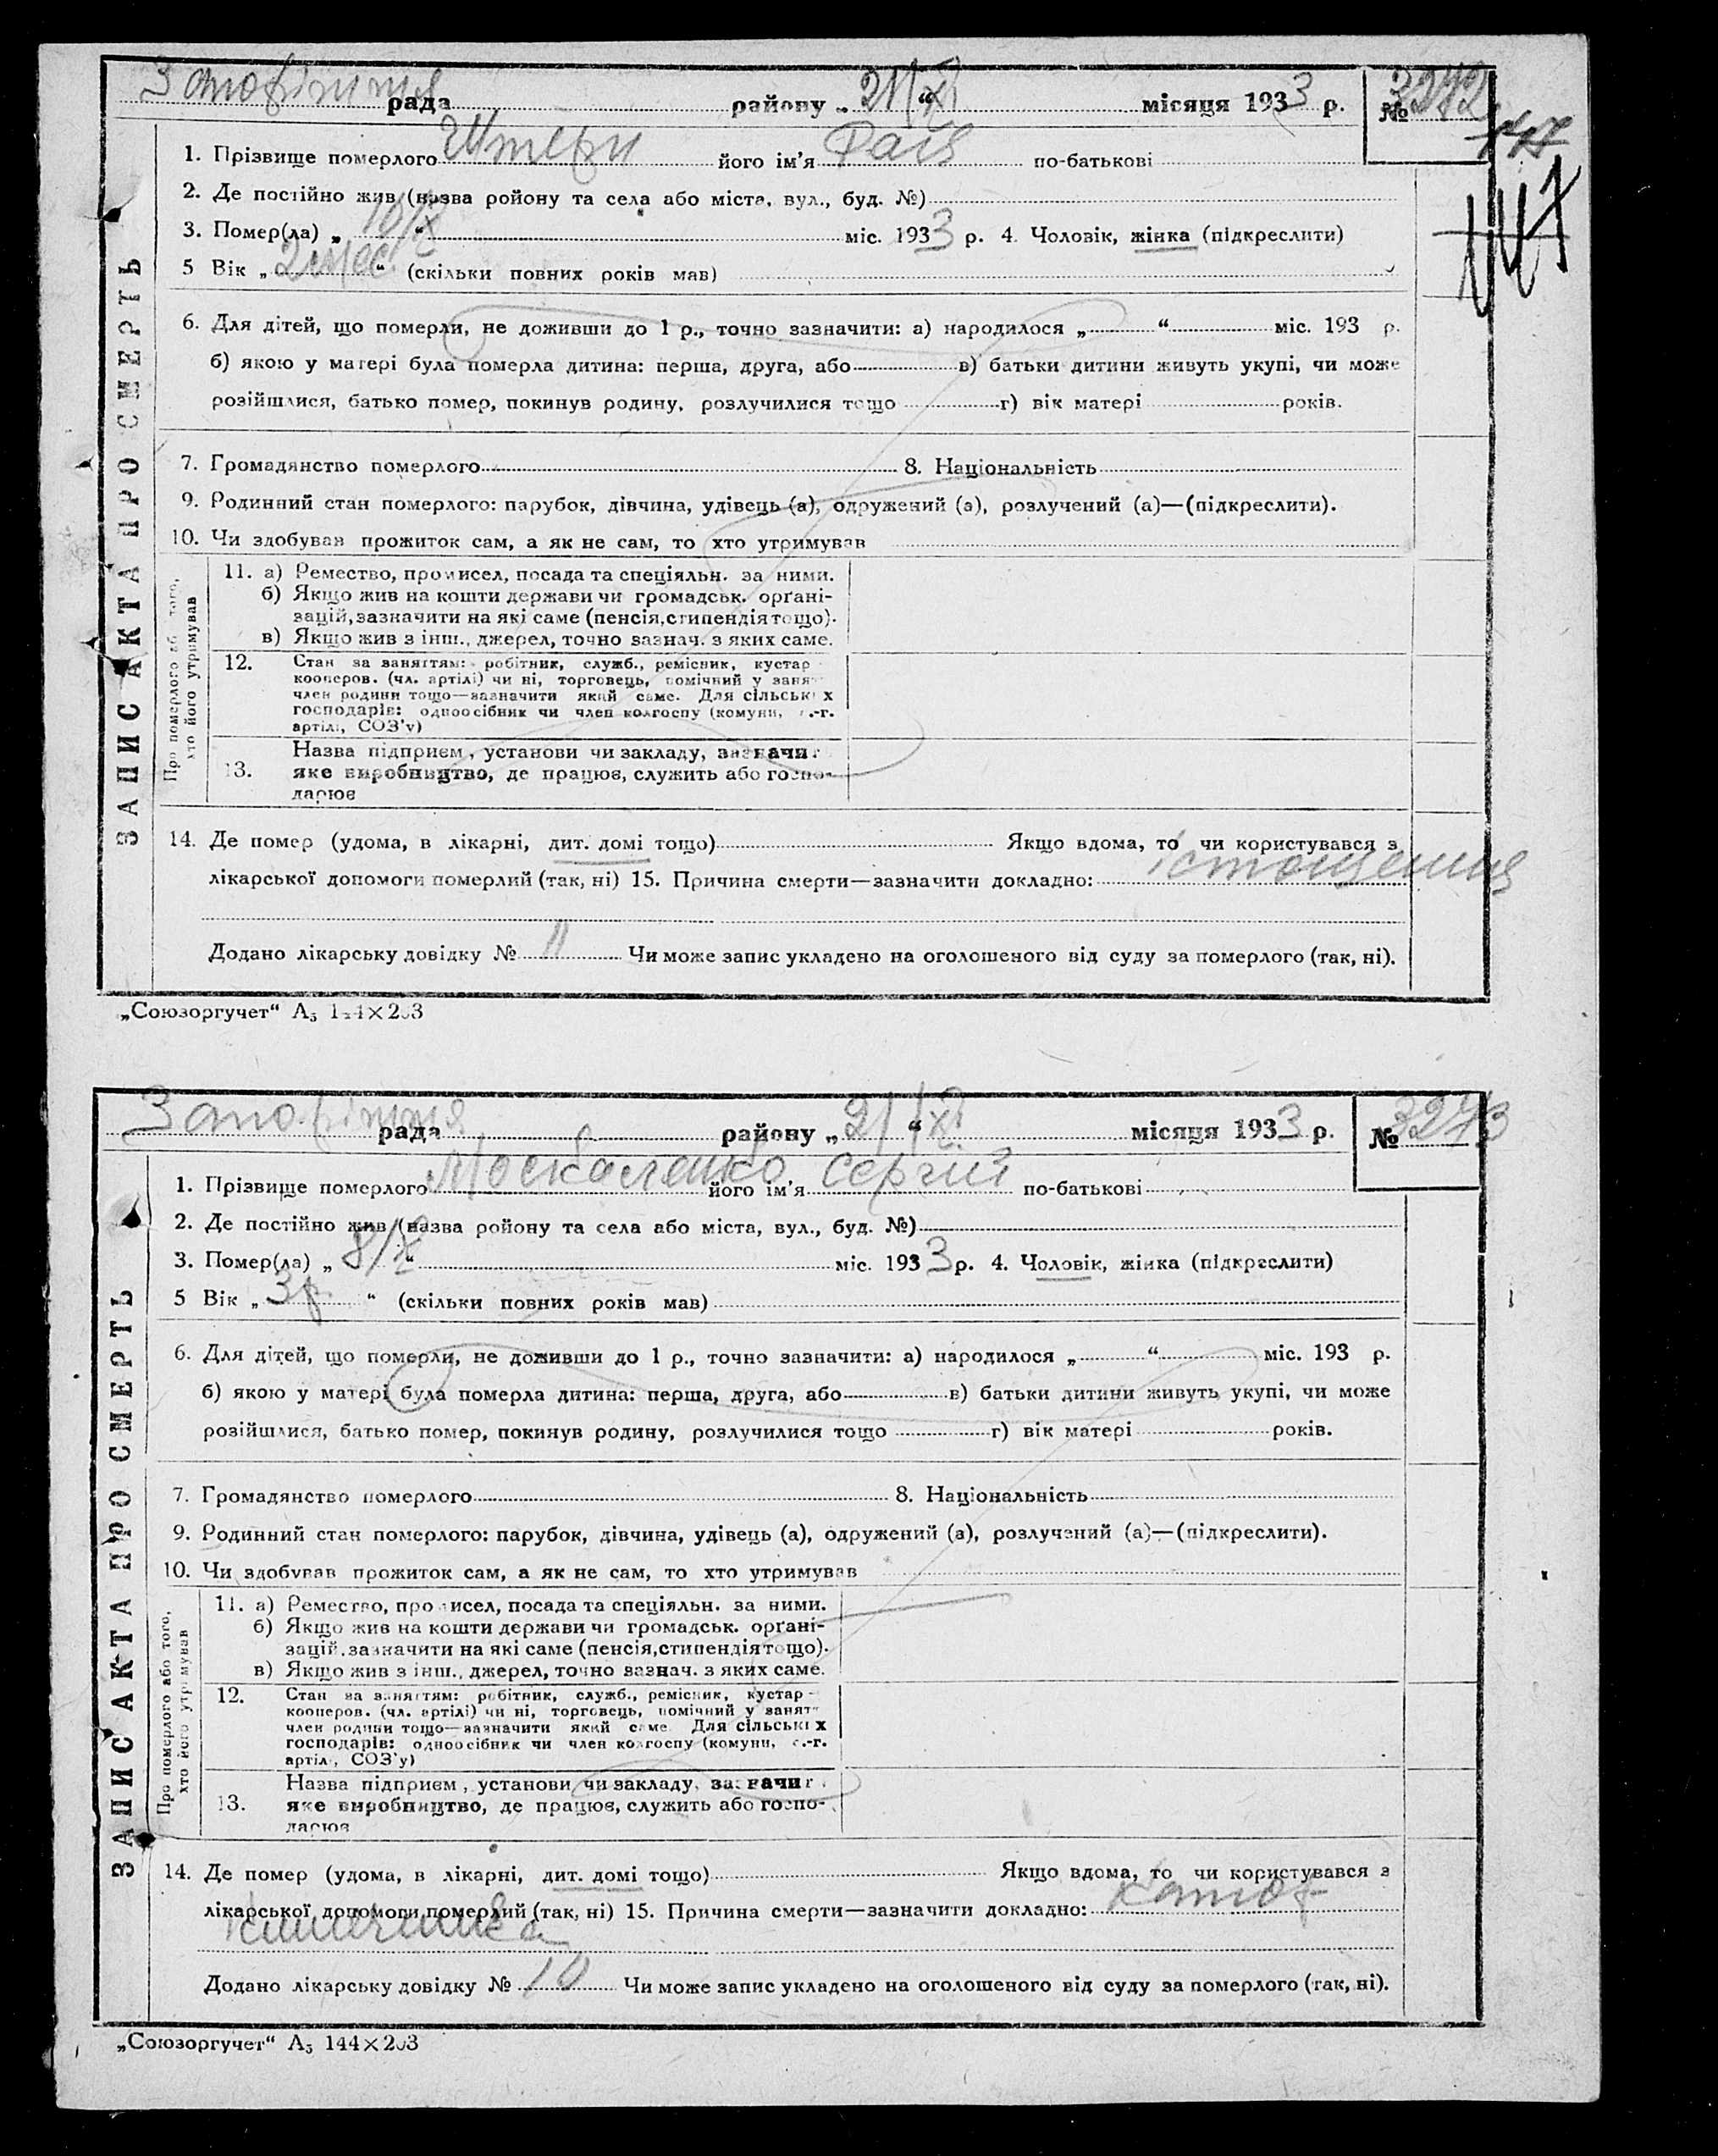 Запоріжжя рада района „21/XI“ місяця 1933 р. № 3272
147
147
1. Прізвище померлого Штерн його ім'я Рая по-батькові
2. Де постійно жив (назва ройону та села або міста, вул., буд. №)
3. Помер(ла) „10/X“ міс. 1933 р. 4. Чоловік, жінка (підкреслити)
5 Вік „2 міс.“ (скільки повних років мав)
6. Для дітей, що померли, не доживши до 1 р., точно зазначити: а) народилося „ “ міс. 193 р.
б) якою у матері була померла дитина: перша, друга, або в) батьки дитини живуть укупі, чи може
розійшлися, батько помер, покинув родину, розлучилися тощо г) вік матері років.
7. Громадянство померлого 8. Національність
9. Родинний стан померлого: парубок, дівчина, удівець (а), одружений (а), розлучений (а)—(підкреслити).
10. Чи здобував прожиток сам, а як не сам, то хто утримував
11. а) Ремество, промисел, посада та спеціяльн. за ними.
б) Якщо жив на кошти держави чи громадськ. орґані-
зацій, зазначити на які саме (пенсія, стипендія тощо).
в) Якщо жив з інш., джерел, точно зазнач. з яких саме.
12. Стан за заняттям: робітник, служб., ремісник, кустар
кооперов. (чл. артілі) чи ні, торговець, помічний у занят
член родини тощо—зазначити який саме. Для сільських
господарів: одноосібник чи член колгоспу (комуни, с.-г.
артілі, СОЗ'у)
13. Назва підприєм, установи чи закладу, зазначит
яке виробництво, де працює, служить або госпо-
дарює
Про померлого аб того,
хто його утримував
ЗАПИС АКТА ПРО СМЕРТЬ
14. Де помер (удома, в лікарні, дит. домі тощо) Якщо вдома, то чи користувався з
лікарської допомоги померлий (так, ні) 15. Причина смерти—зазначити докладно: істощення
Додано лікарську довідку № 11 Чи може запис укладено на оголошеного від суду за померлого (так, ні).
„Союзоргучет“ А5 144×203
Запоріжжя рада району „21/XI“ місяця 1933 р. № 3273
1. Прізвище померлого Москаленко його ім'я Сергій по-батькові
2. Де постійно жив (назва ройону та села або міста, вул., буд. №)
3. Помер(ла) „8/X“ міс. 1933 р. 4. Чоловік, жінка (підкреслити)
5 Вік „3 р.“ (скільки повних років мав)
6. Для дітей, що померли, не доживши до 1 р., точно зазначити: а) народилося „ “ міс. 193 р.
б) якою у матері була померла дитина: перша, друга, або в) батьки дитини живуть укупі, чи може
розійшлися, батько помер, покинув родину, розлучилися тощо г) вік матері років.
7. Громадянство померлого 8. Національність
9. Родинний стан померлого: парубок, дівчина, удівець (а), одружений (а), розлучений (а)—(підкреслити).
10. Чи здобував прожиток сам, а як не сам, то хто утримував
11. а) Ремество, промисел, посада та спеціяльн. за ними.
б) Якщо жив на кошти держави чи громадськ. орґані-
зацій, зазначити на які саме (пенсія, стипендія тощо).
в) Якщо жив з інш., джерел, точно зазнач. з яких саме.
12. Стан за заняттям: робітник, служб., ремісник, кустар
кооперов. (чл. артілі) чи ні, торговець, помічний у занят
член родини тощо—зазначити який саме. Для сільських
господарів: одноосібник чи член колгоспу (комуни, с.-г.
артілі, СОЗ'у)
13. Назва підприєм, установи чи закладу, зазначит
яке виробництво, де працює, служить або госпо-
дарює
Про померлого або того,
хто його утримував
ЗАПИС АКТА ПРО СМЕРТЬ
14. Де помер (удома, в лікарні, дит. домі тощо) Якщо вдома, то чи користувався з
лікарської допомоги померлий (так, ні) 15. Причина смерти—зазначити докладно: катар
кишечника
Додано лікарську довідку № 10 Чи може запис укладено на оголошеного від суду за померлого (так, ні).
„Союзоргучет“ А5 144×203